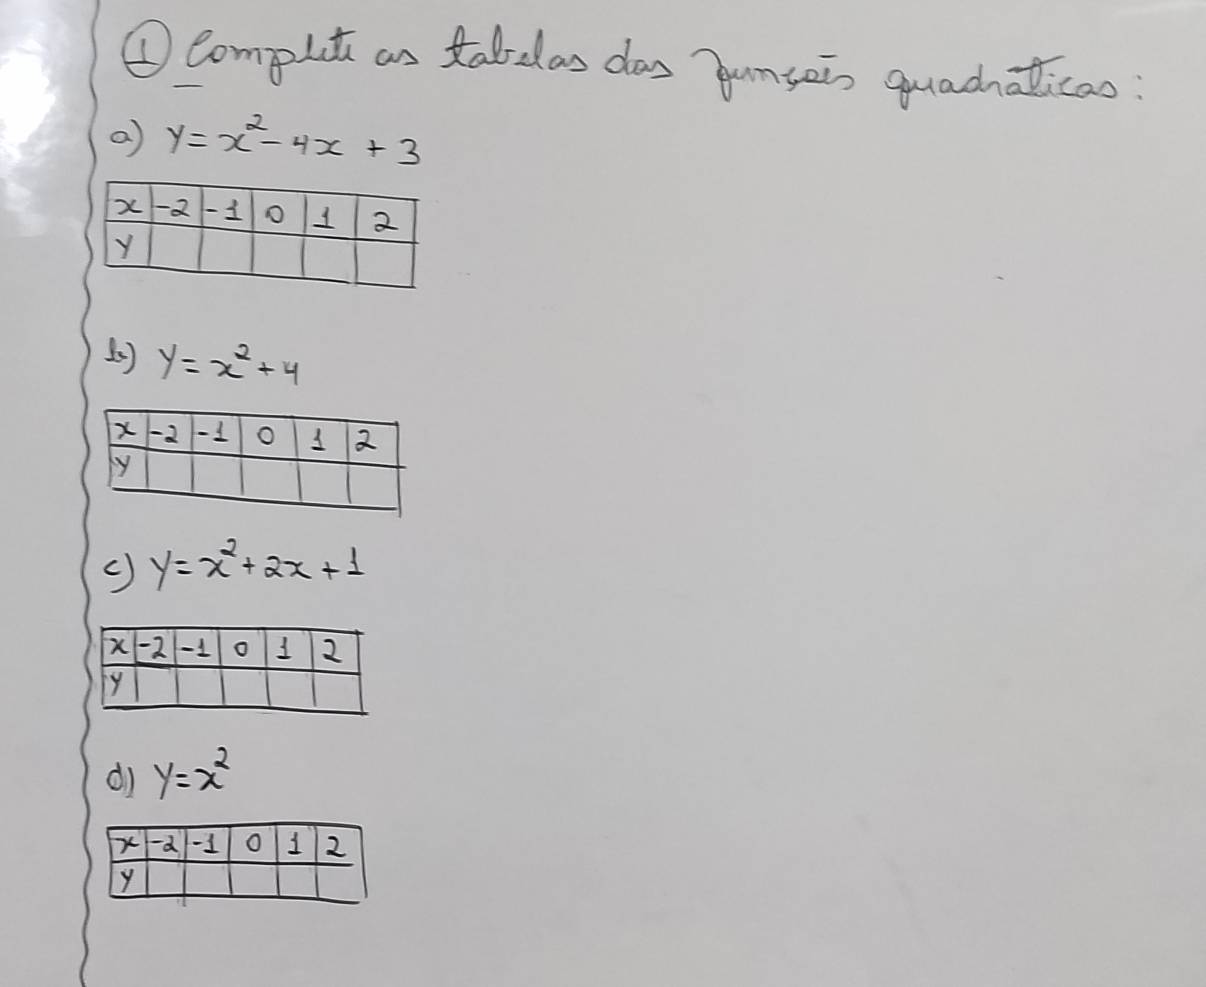 ① Complete as tabelas das funções quadráticas:
a) y = x² - 4x + 3
x -2 -1 0 1 2
y
b) y = x² + 4
x -2 -1 0 1 2
y
c) y = x² + 2x + 1
x -2 -1 0 1 2
y
d) y = x²
x -2 -1 0 1 2
y